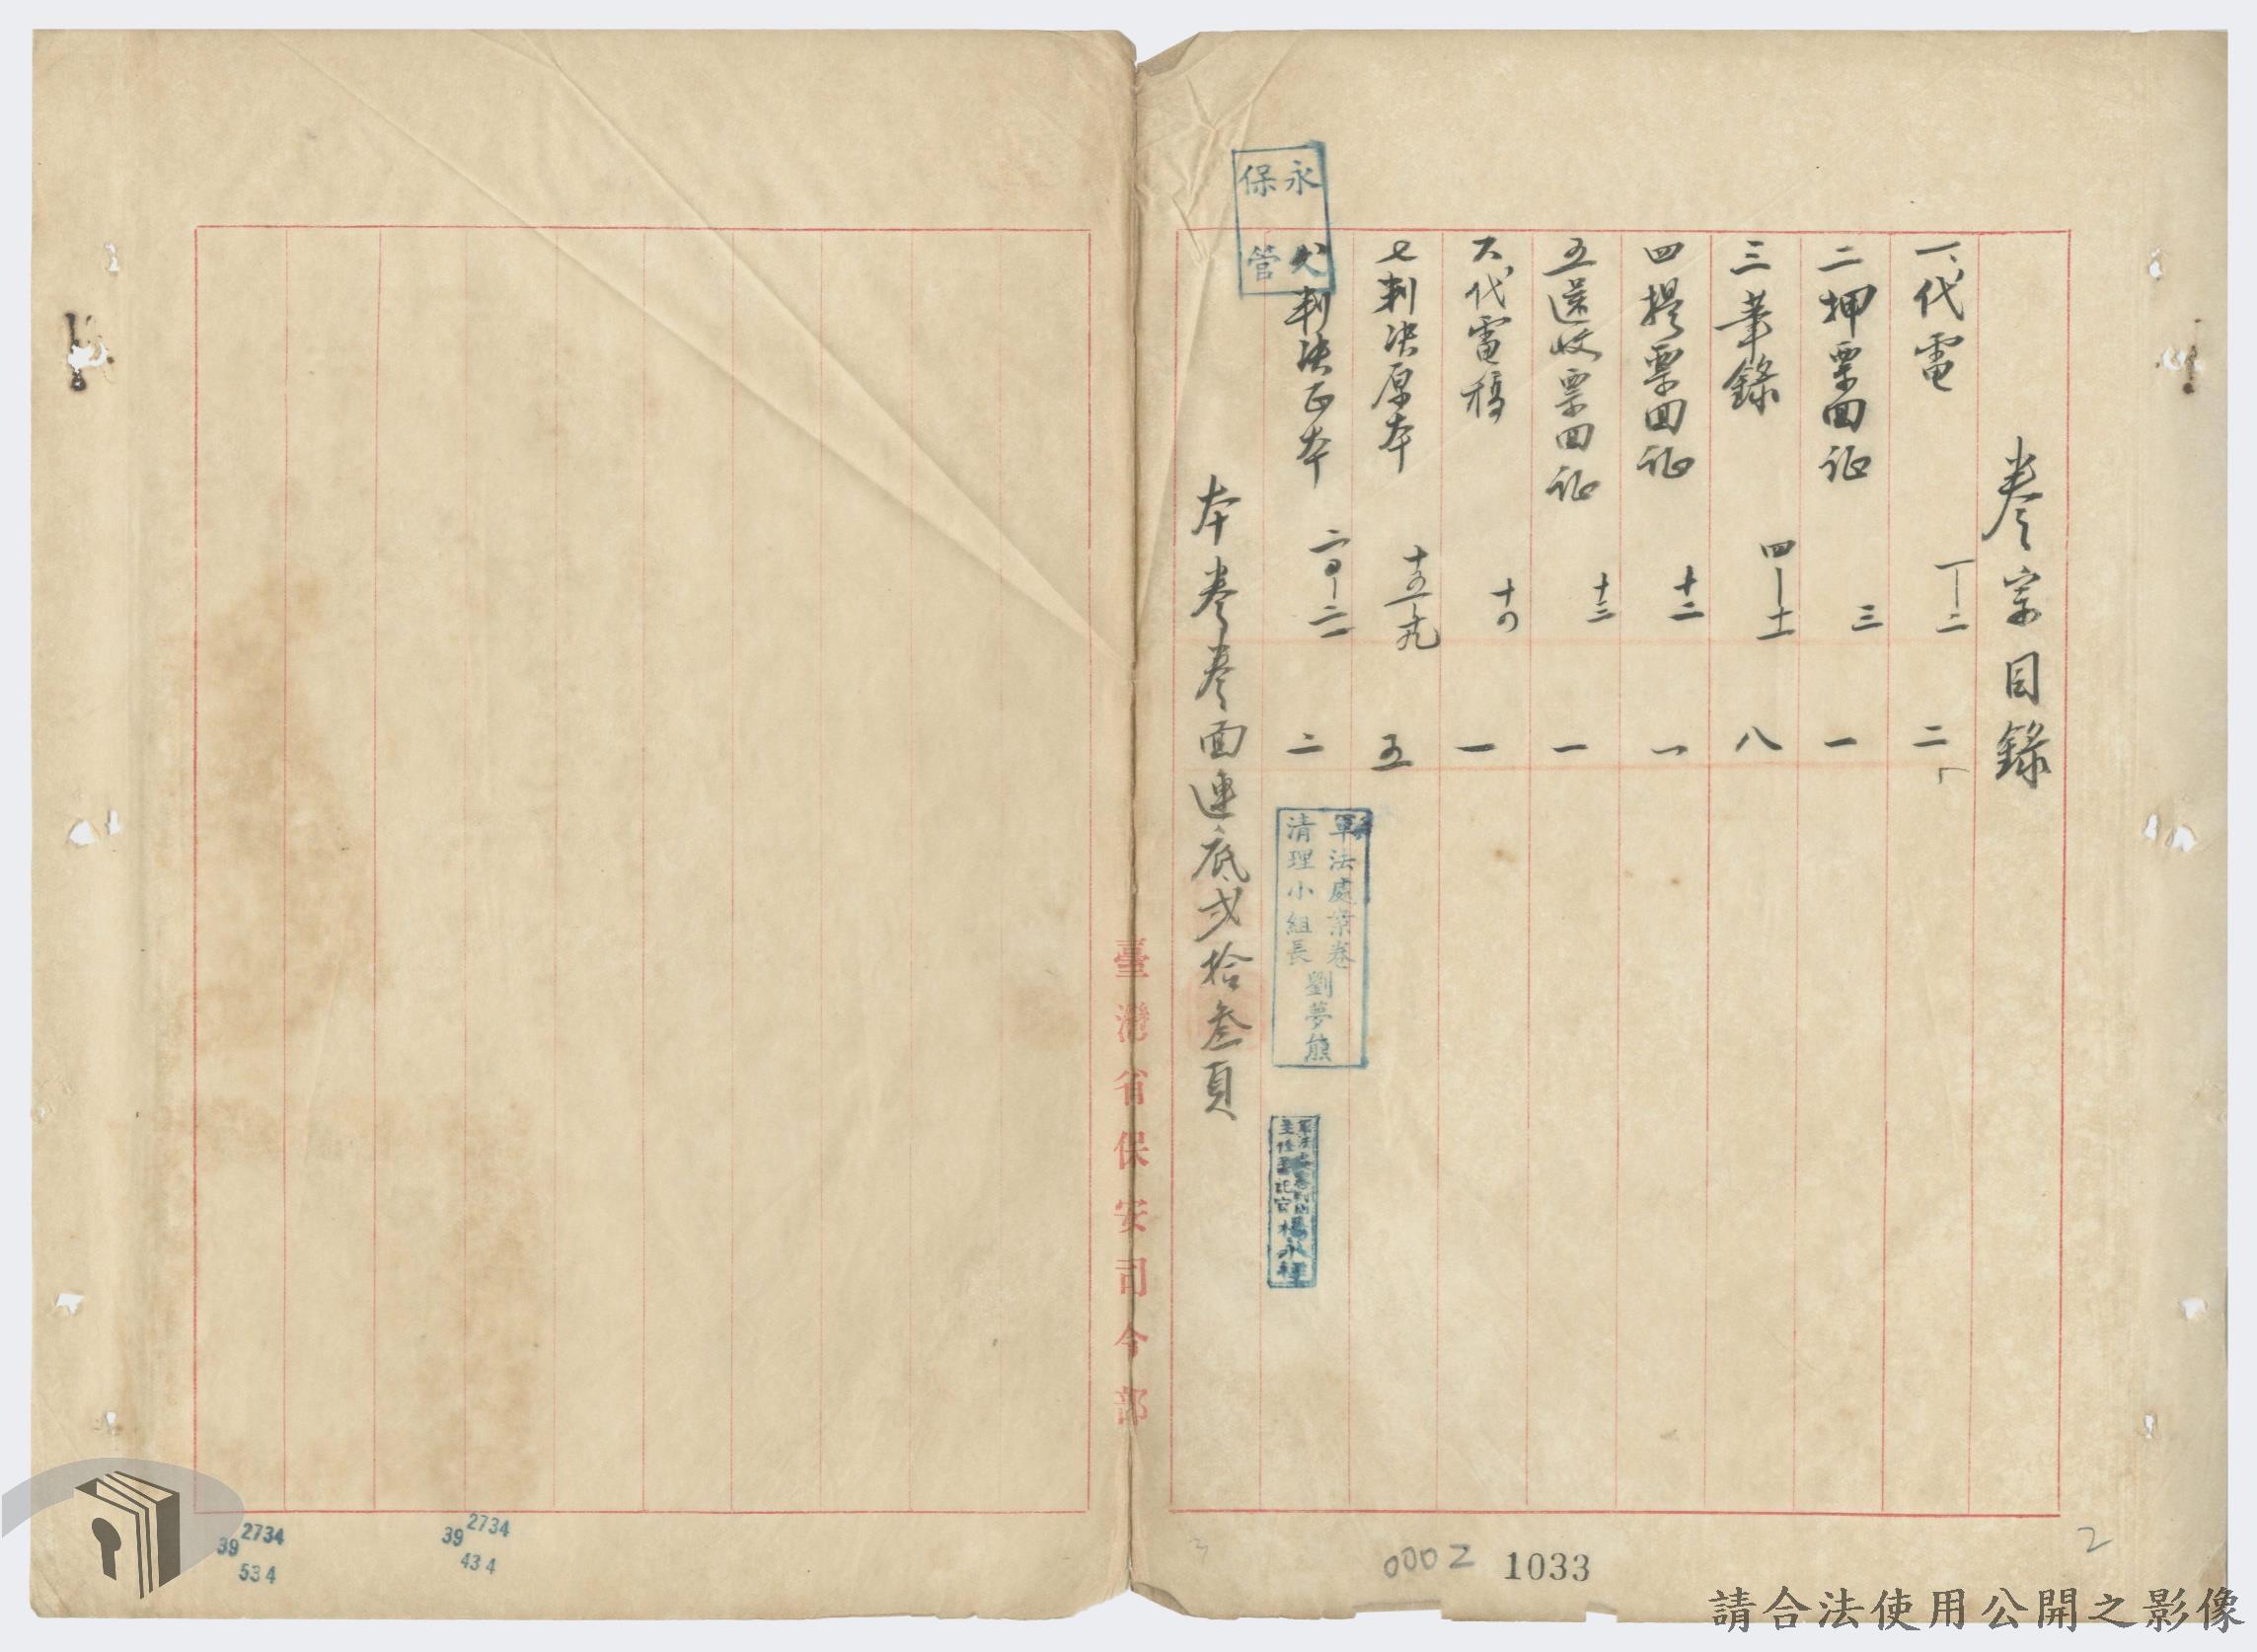 卷宗目錄
一、代電 一—二 二
二 押票回証 三 一
三 筆錄 四—十一 八
四 提票回証 十二 一
五 還收票回証 十三 一
六 代電稿 十四 一
七 判決原本 十五—十九 五
八 判決正本 二十—二一 二
本卷卷面連底弍拾叁頁
永保管
軍法處案卷
清理小組長
劉夢熊
主任書記官
楊永
臺灣省保安司令部
2734
39
534
2734
39
434
3
0002
1033
2
請合法使用公開之影像